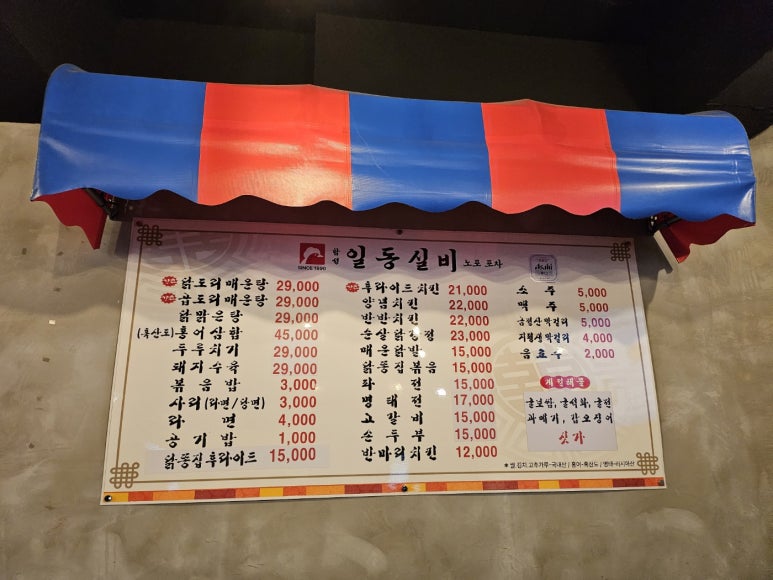 SINCE 1990
일동실비 노포 포차
닭도리매운탕 29,000
곱도리매운탕 29,000
닭맑은탕 29,000
(흑산도)홍어삼합 45,000
두루치기 29,000
돼지수육 29,000
볶음밥 3,000
사리(라면/당면) 3,000
라면 4,000
공기밥 1,000
닭·똥집후라이드 15,000
후라이드치킨 21,000
양념치킨 22,000
반반치킨 22,000
순살닭강정 23,000
매운닭발 15,000
닭똥집볶음 15,000
파전 15,000
명태전 17,000
고갈비 15,000
손두부 15,000
반마리치킨 12,000
Asahi
소주 5,000
맥주 5,000
막걸리 5,000
지평생막걸리 4,000
음료수 2,000
계절메뉴
굴보쌈, 굴석화, 굴전
과메기, 갑오징어
싯가
* 쌀,김치,고추가루-국내산 / 홍어-흑산도 / 명태-러시아산